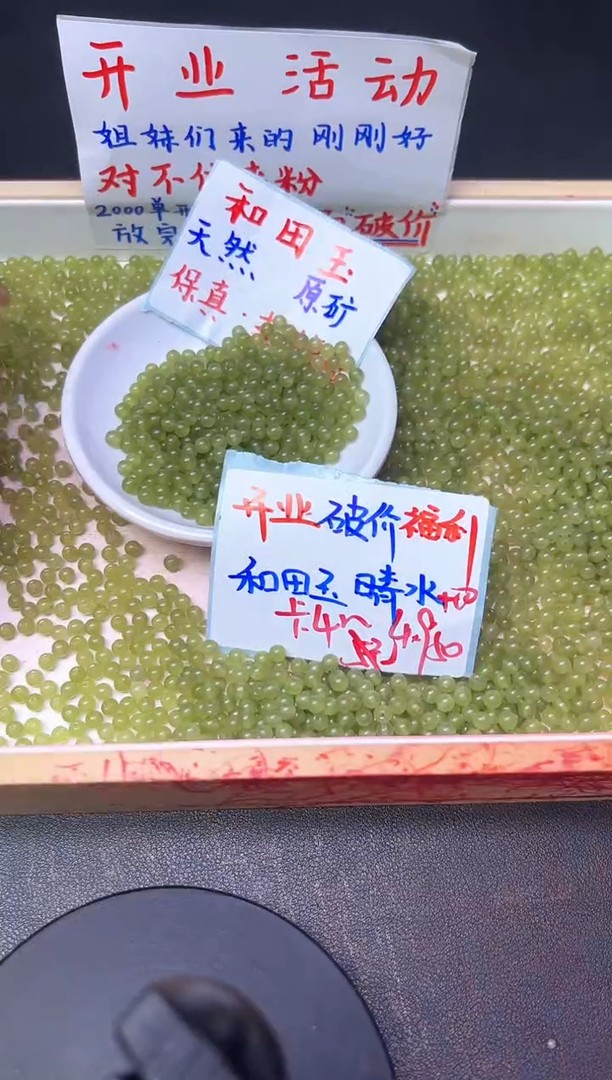 开业活动
姐妹们来的刚刚好
对不 粉
2000单 破价
放
和田玉
天然 原矿
保真
开业破价福利
和田玉晴水